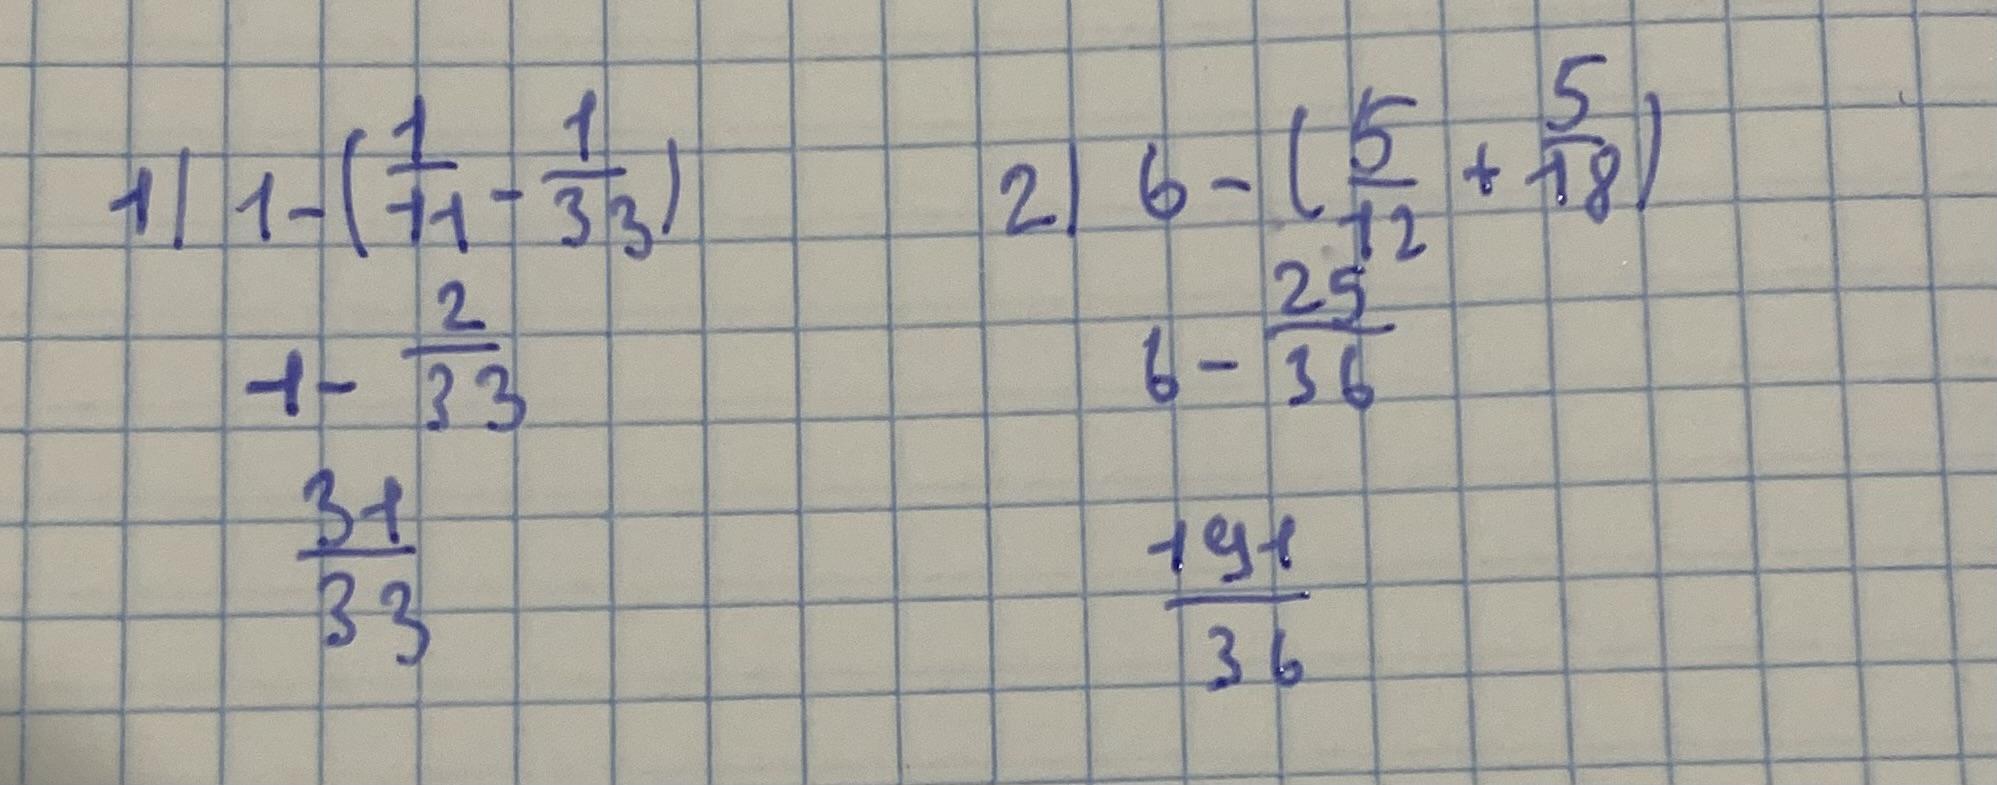 1) 1 - (1/11 - 1/33)
1 - 2/33
31/33
2) 6 - (5/12 + 5/18)
6 - 25/36
191/36